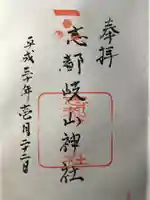 奉拝
志都岐山神社
平成三十年壱月二十二日